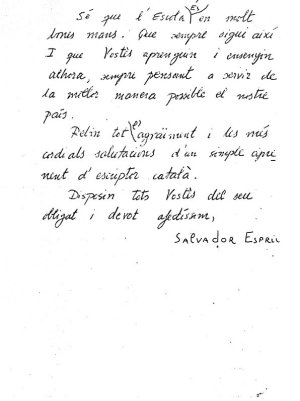 Sé que l'Escola És en molt
bones mans. Que sempre sigui així
I que Vostès aprenguin i ensenyin
alhora, sempre pensant a servir de
la millor manera possible el nostre
país.
Rebin tot el agraïment i les més
cordials salutacions d'un simple apre
nent d'escriptor català.
Disposin tots Vostès del seu
obligat i devot afectíssim,
SALVADOR ESPRIU